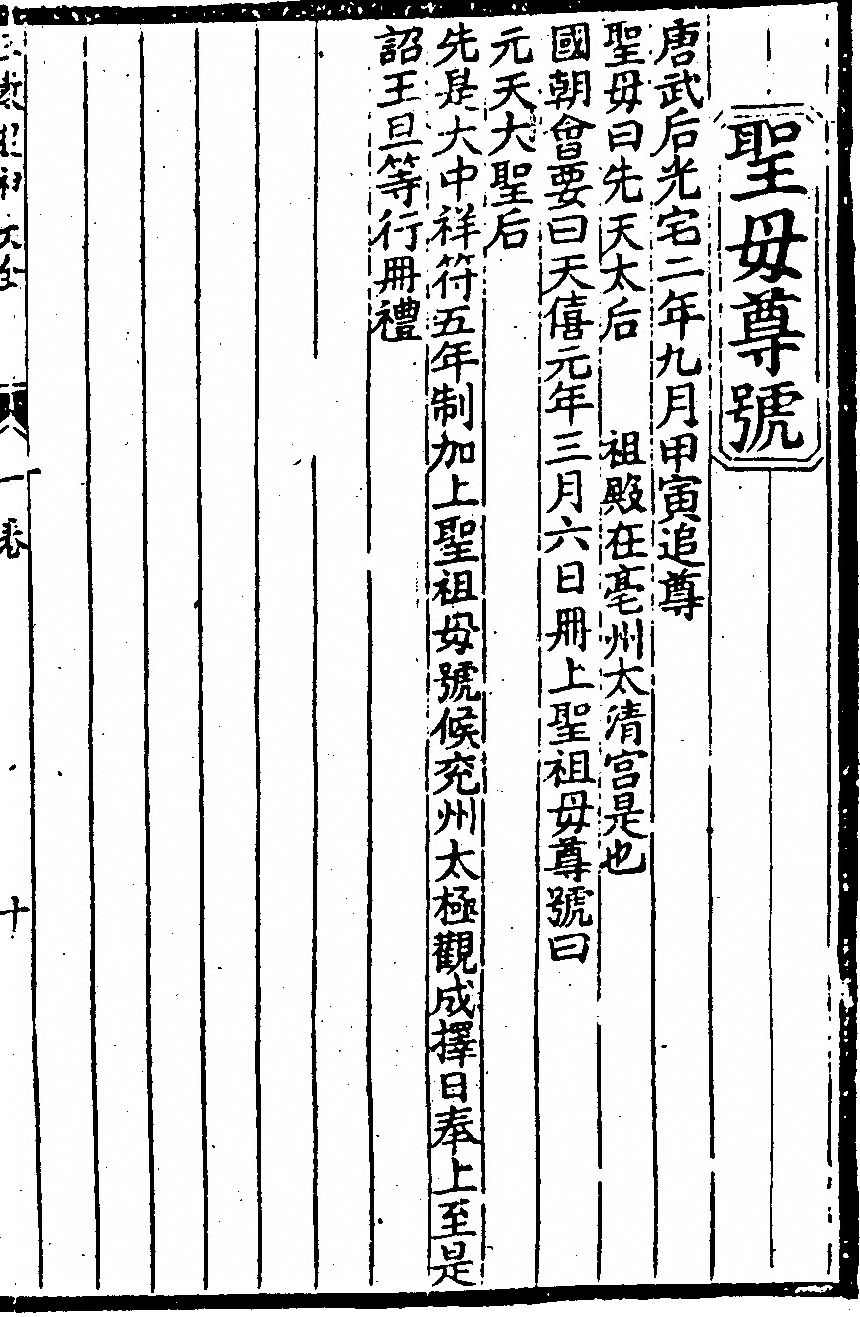 聖母尊號
唐武后光宅二年九月甲寅追尊
聖母曰先天太后　祖殿在亳州太清宫是也
國朝會要曰天僖元年三月六日冊上聖祖母尊號曰
元天大聖后
先是大中祥符五年制加上聖祖母號候兖州太極觀成擇日奉上至是
詔王旦等行冊禮
一卷
十